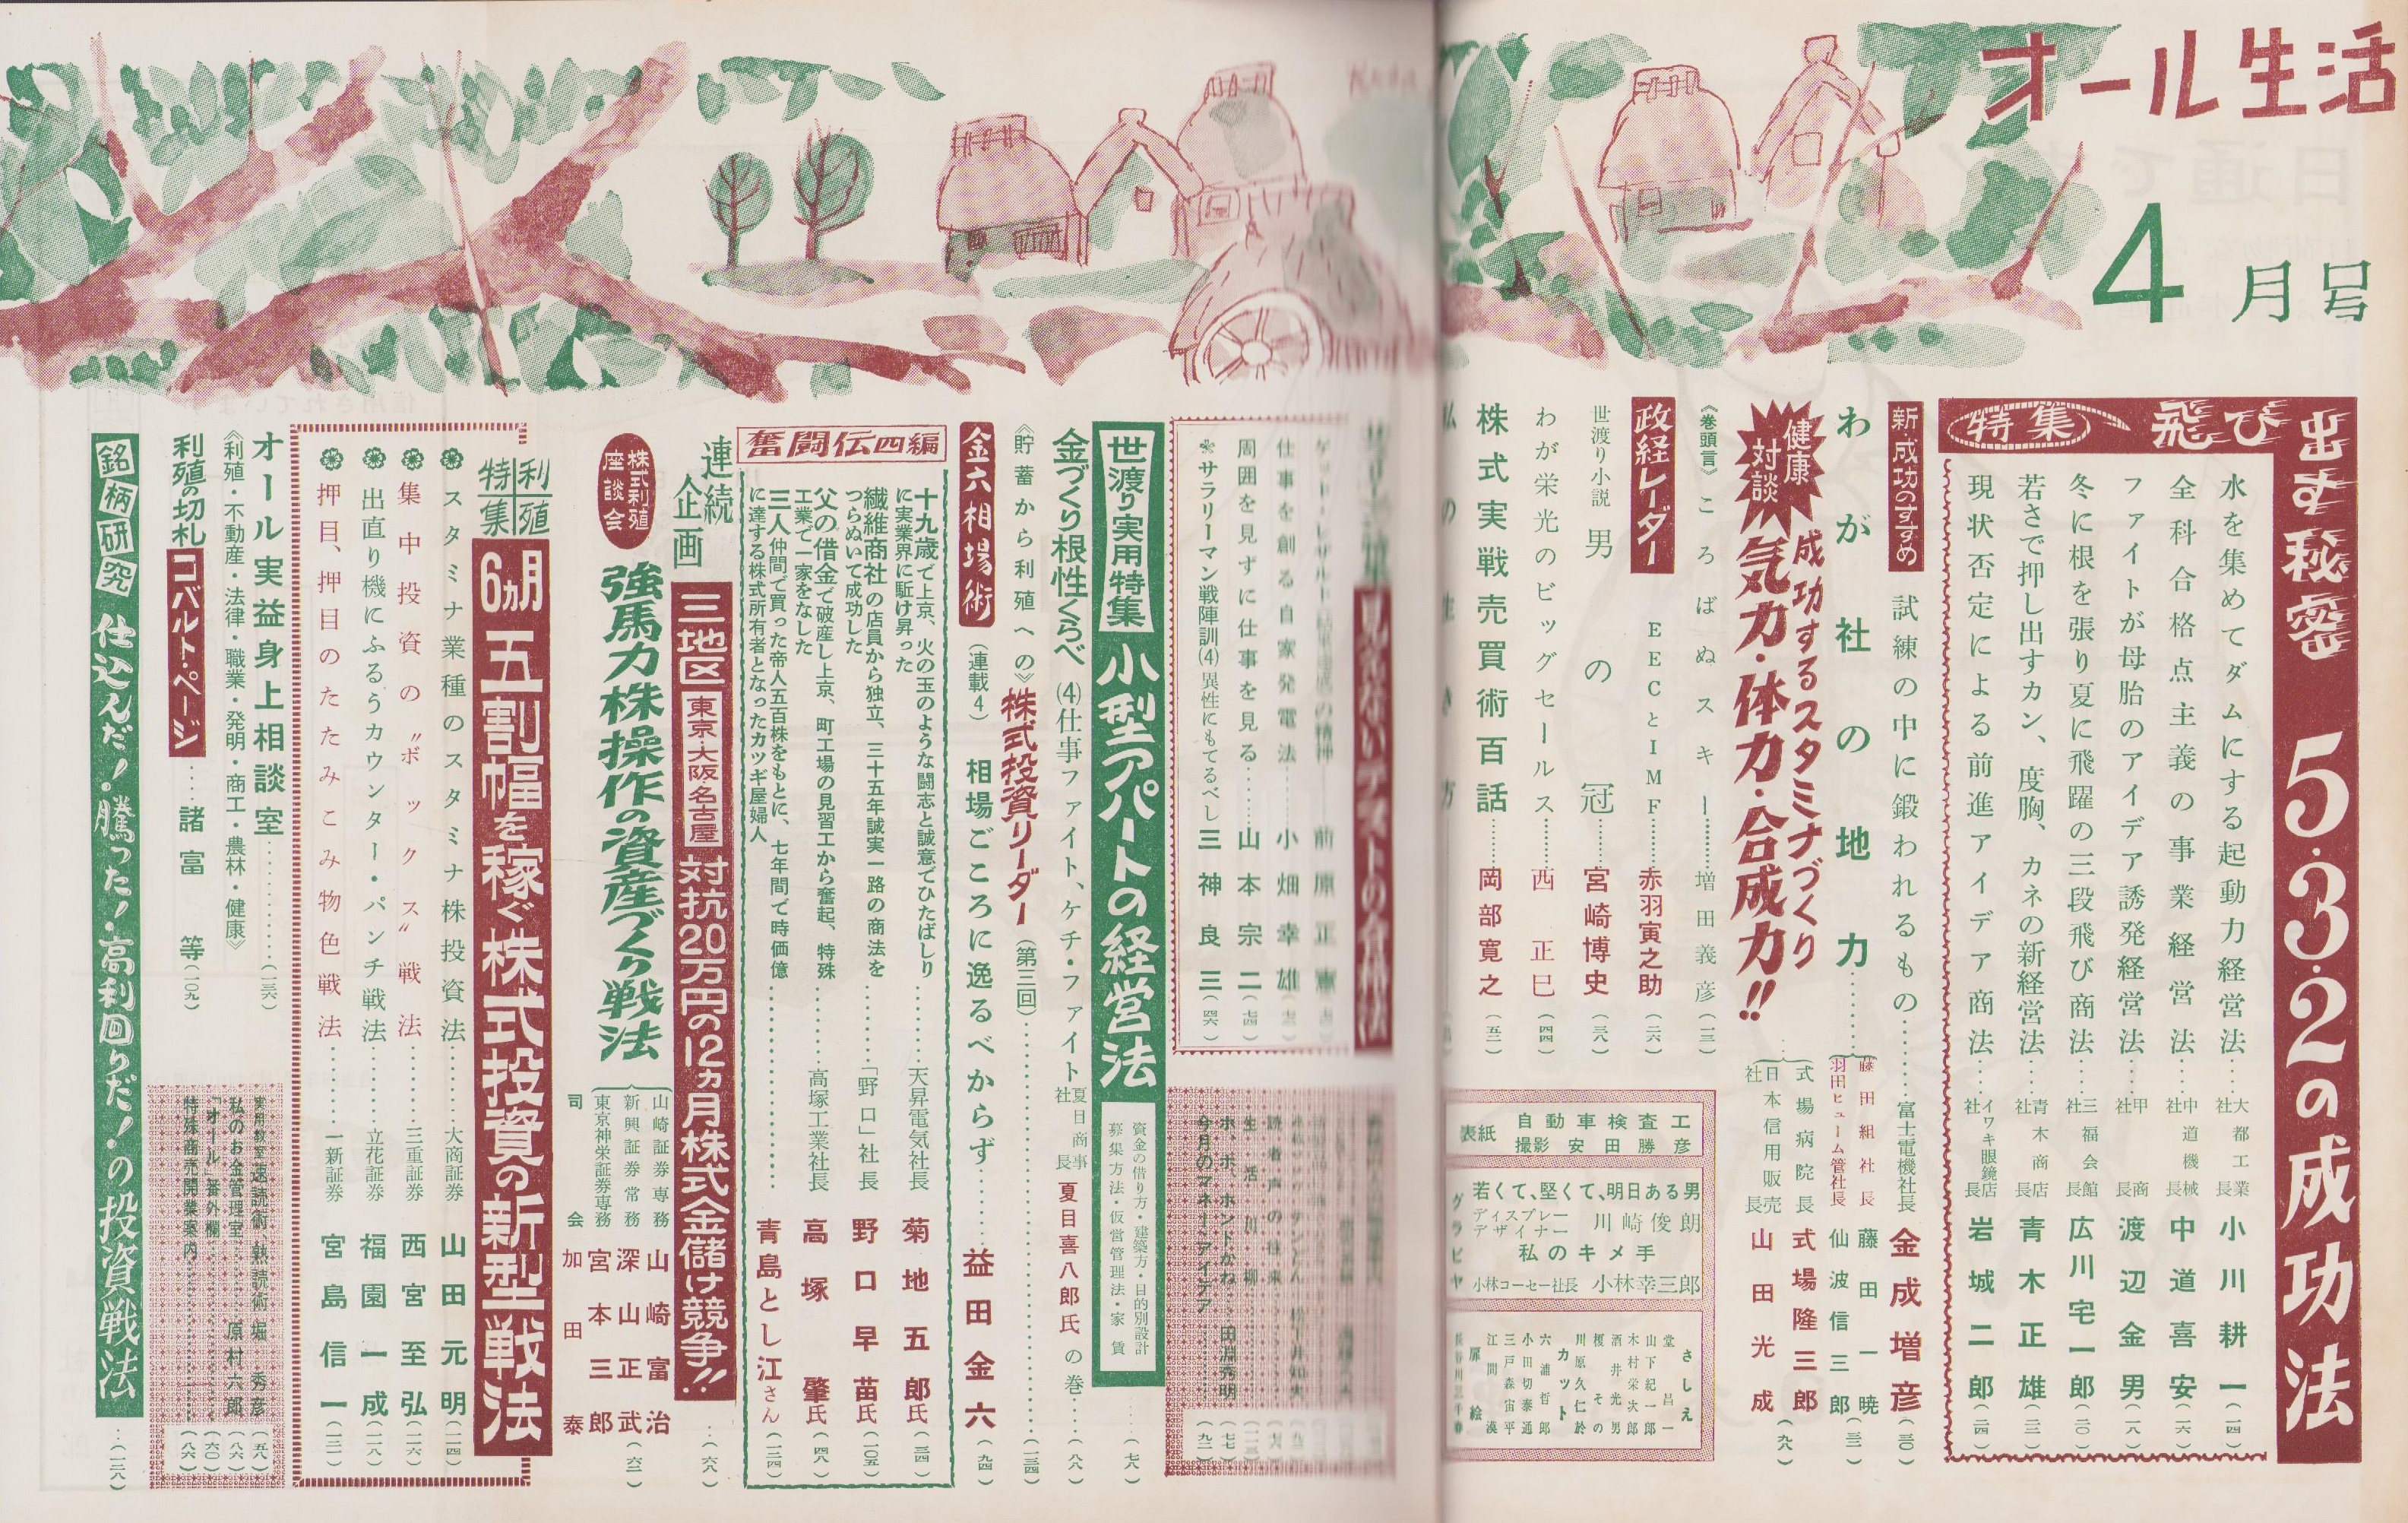 オール生活
4月号
特集 飛び出す秘密 5・3・2の成功法
水を集めてダムにする起動力経営法……大都工業社長 小川耕一(一四)
全科合格点主義の事業経営法……中道機械社長 中道喜安(一六)
ファイトが母胎のアイデア誘発経営法……甲商社長 渡辺金男(一八)
冬に根を張り夏に飛躍の三段飛び商法……三福会館社長 広川宅一郎(二〇)
若さで押し出すカン、度胸、カネの新経営法……青木商店社長 青木正雄(二二)
現状否定による前進アイデア商法……イワキ眼鏡店社長 岩城二郎(二四)
新・成功のすすめ 試練の中に鍛われるもの……富士電機社長 金成増彦(三〇)
わが社の地力……
藤田組社長 藤田一暁
羽田ヒューム管社長 仙波信三郎(三二)
健康対談 成功するスタミナづくり
気力・体力・合成力!!
式場病院長 式場隆三郎
日本信用販売社長 山田光成(九八)
《巻頭言》ころばぬスキー……増田義彦(一三)
政経レーダー EECとIMF……赤羽寅之助(二六)
世渡り小説 男の冠……宮崎博史(三八)
わが栄光のビッグセールス……西正巳(四四)
株式実戦売買術百話……岡部寛之(五二)
私の生き方
表紙 自動車検査工
撮影 安田勝彦
グラビヤ
若くて、堅くて、明日ある男
ディスプレーデザイナー 川崎俊朗
私のキメ手
小林コーセー社長 小林幸三郎
さしえ
堂昌一
山下紀一郎
木村栄次郎
酒井光男
榎その
川原久仁於
カット
六浦哲郎
小田切泰通
三戸森宙平
江間漠
扉絵
長谷川三千春
前原正憲
仕事を創る自家発電法……小畑幸雄
周囲を見ずに仕事を見る……山本宗二(七四)
サラリーマン戦陣訓(4)異性にもてるべし 三神良三(四六)
読者の声の往来
生活川柳
ホ、ホ、ホントかね……田淵秀明(七七)
今月のマネー・アイデア……(九二)
世渡り実用特集 小型アパートの経営法
資金の借り方・建築方・目的別設計
募集方法・仮営管理法・家賃……(七八)
金づくり根性くらべ (4)仕事ファイト、ケチ・ファイト 夏目商事社長 夏目喜八郎氏の巻……(八八)
《貯蓄から利殖への》株式投資リーダー(第三回)……(一三四)
金六相場術 (連載4) 相場ごころに逸るべからず……益田金六(九四)
奮闘伝四編
十九歳で上京、火の玉のような闘志と誠意でひたばしりに実業界に駈け昇った……天昇電気社長 菊地五郎氏(三四)
繊維商社の店員から独立、三十五年誠実一路の商法をつらぬいて成功した……「野口」社長 野口早苗氏(一〇五)
父の借金で破産し上京、町工場の見習工から奮起、特殊工業で一家をなした……高塚工業社長 高塚肇氏(四八)
三人仲間で買った帝人五百株をもとに、七年間で時価億に達する株式所有者となったカツギ屋婦人……青島とし江さん(一二四)
連続企画 三地区 東京・大阪・名古屋 対抗20万円の12ヵ月株式金儲け競争!!……(六八)
株式利殖座談会 強馬力株操作の資産づくり戦法
山崎証券専務 山崎富治
新興証券常務 深山正武(六二)
東京神栄証券専務 宮本三郎
司会 加田泰
利殖特集 6ヵ月五割幅を稼ぐ株式投資の新型戦法
スタミナ業種のスタミナ株投資法……大商証券 山田元明(一一四)
集中投資の〝ボックス〟戦法……三重証券 西宮至弘(一一六)
出直り機にふるうカウンター・パンチ戦法……立花証券 福園一成(一一八)
押目、押目のたたみこみ物色戦法……一新証券 宮島信一(一二一)
オール実益身上相談室……(一三六)
《利殖・不動産・法律・職業・発明・商工・農林・健康》
利殖の切札 コバルト・ページ……諸富等(一〇九)
実用教室 速読術、熟読術 堀秀彦(五八)
私のお金管理室……原村六郎(八六)
「オール」番外欄……(六〇)
特殊商売開業案内……(八六)
銘柄研究 仕込んだ!騰った!高利回りだ!の投資戦法……(一二八)